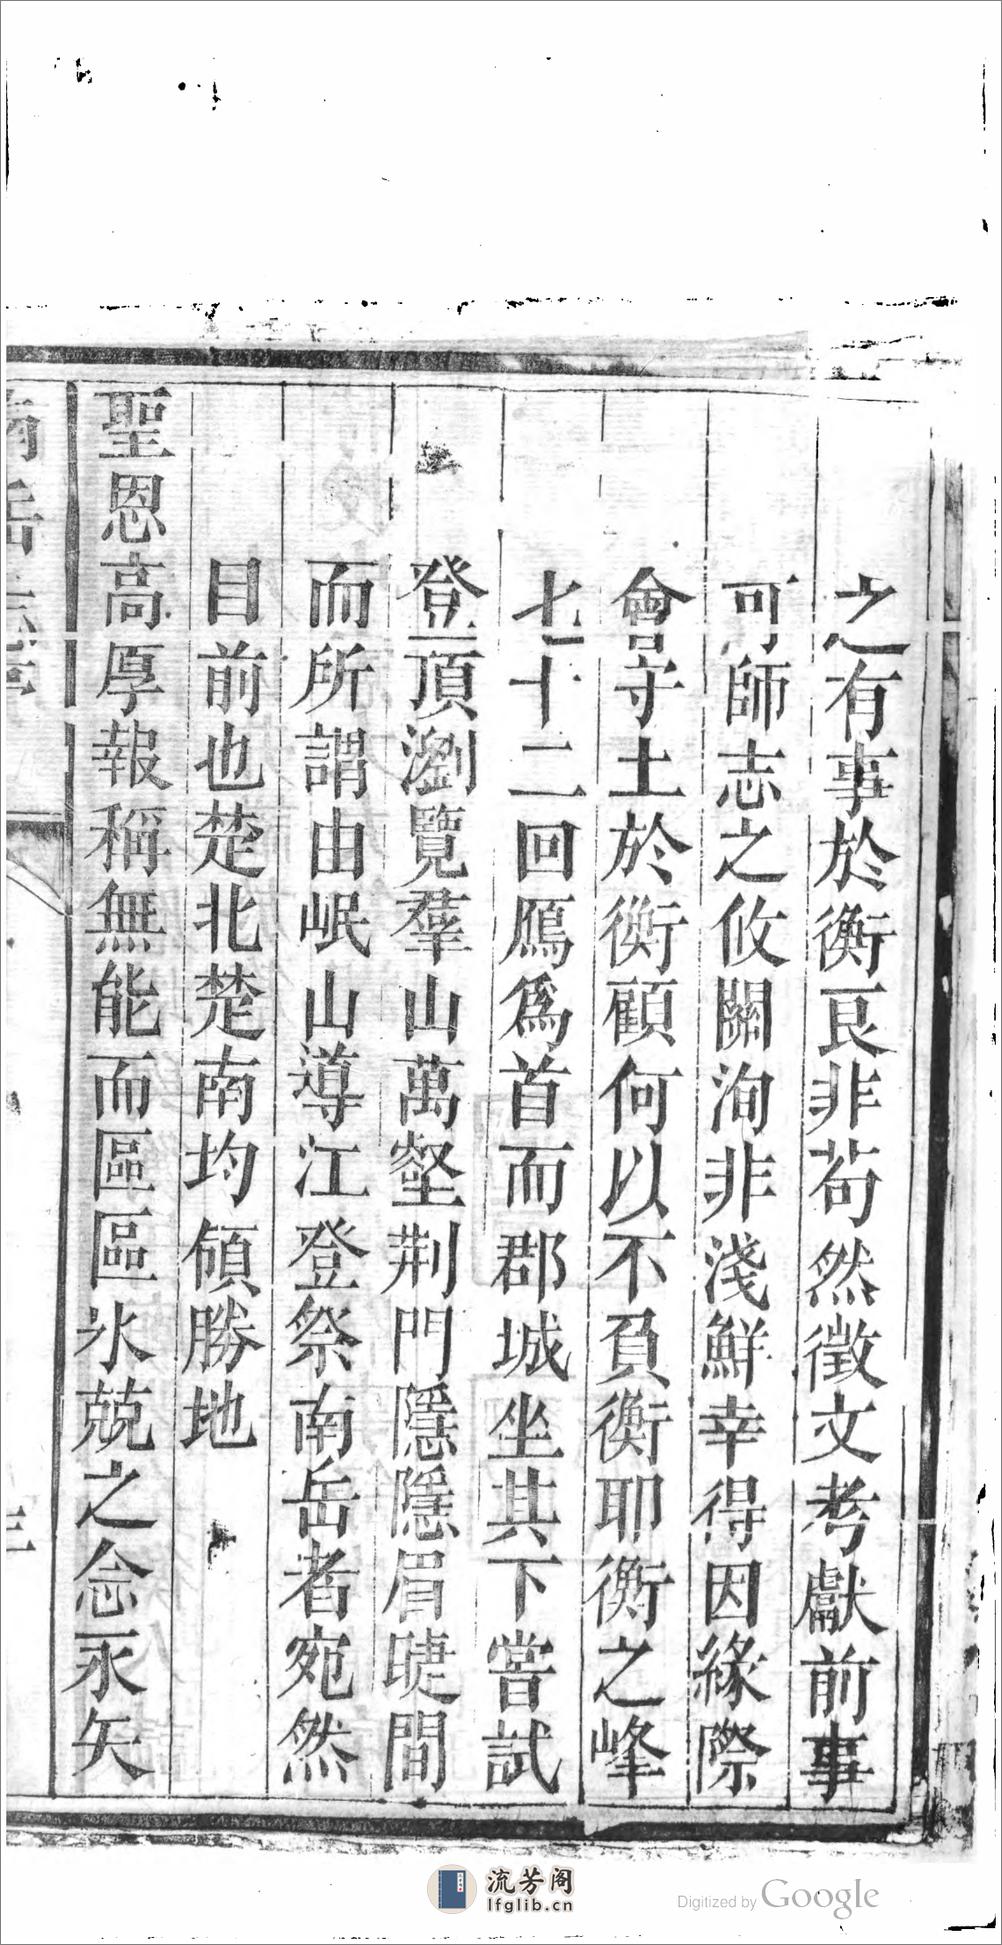 之有事於衡良非苟然徵文考獻前事
可師志之攸關洵非淺鮮幸得因緣際
會守土於衡顧何以不負衡耶衡之峰
七十二回鴈為首而郡城坐其下嘗試
登頂瀏覽羣山萬壑荆門隱隱眉睫間
而所謂由岷山導江登祭南岳者宛然
目前也楚北楚南均傾勝地
聖恩高厚報稱無能而區區氷兢之念永矢
流芳阁
lfglib.cn
Digitized by Google